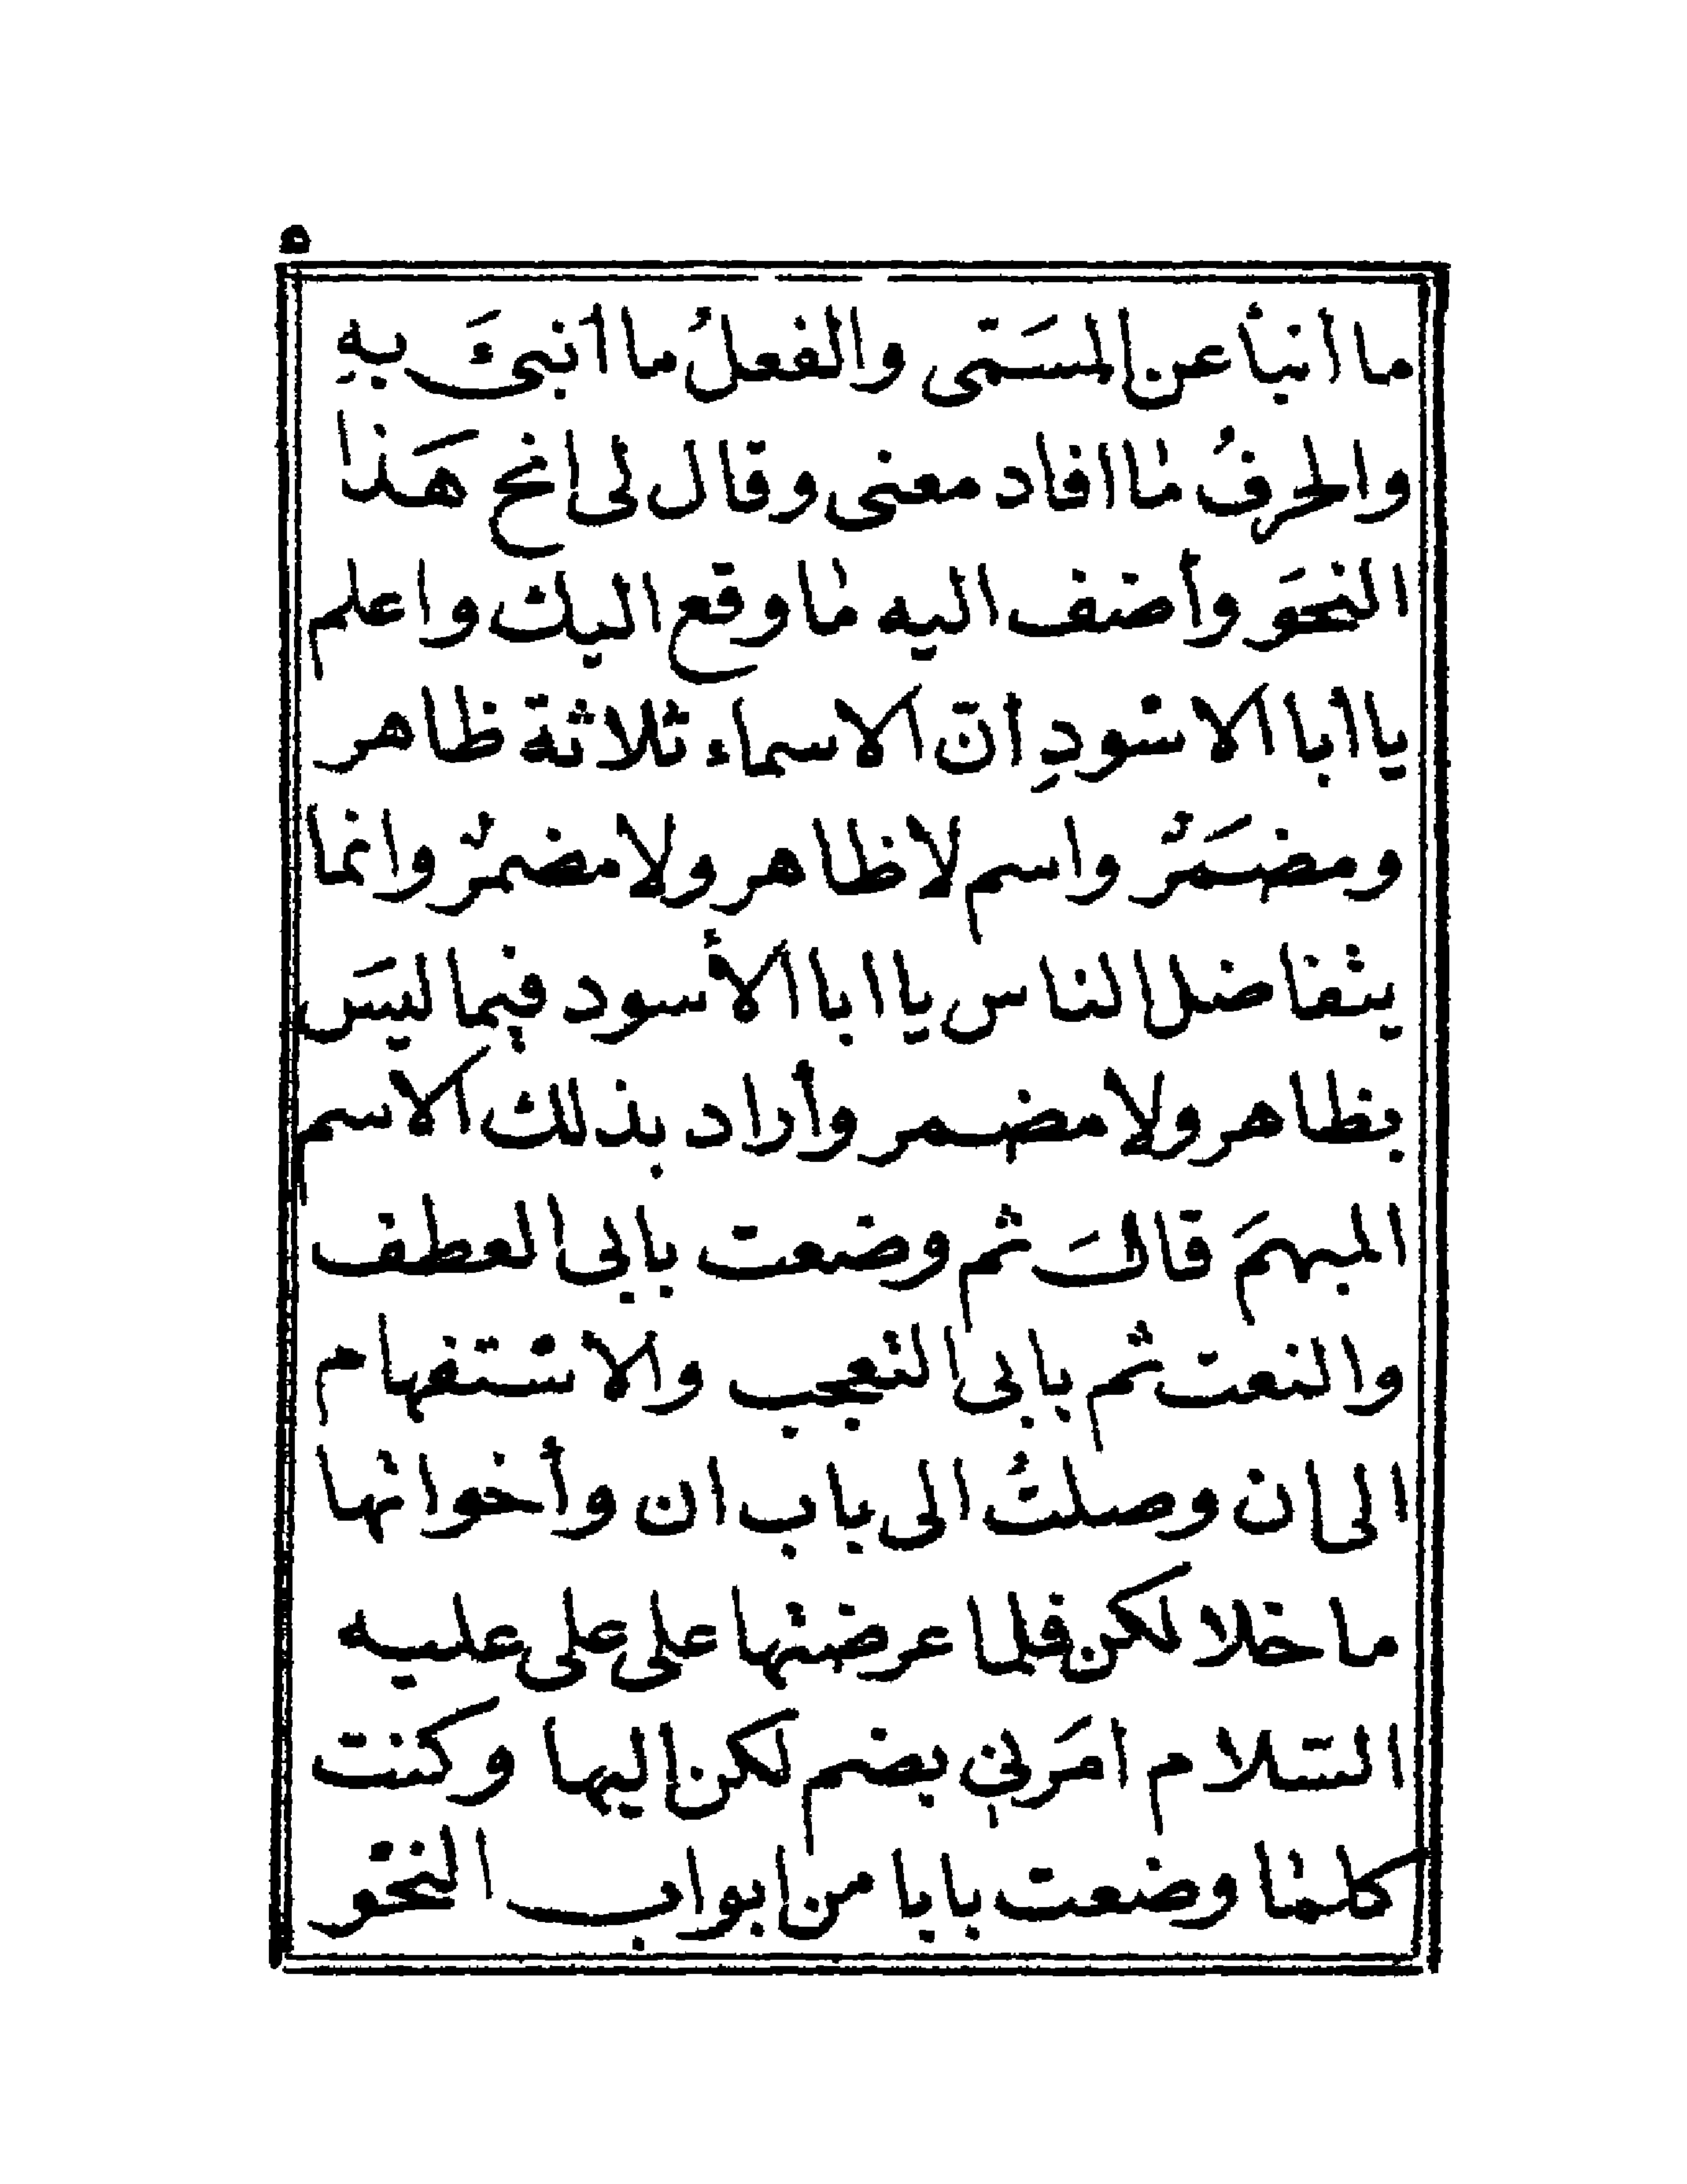 ٥
ما أنبأ عن المسَمّى والفعلُ ما أنبئَ بهِ
والحرفُ ما افاد معنى وقال لى انح هَذا
النحوَ وأضف اليه ما وقع اليك واعلم
يا أبا الاسودِ انّ الاسماء ثلاثة ظاهر
ومضمَرٌ واسم لا ظاهر ولا مضمرٌ وانما
يتفاضل الناس يا ابا الأسود فيما ليسَ
بظاهر ولا مضمر وأراد بذلك الاسم
المبهمَ قالَ ثم وضعت بابى العطف
والنعت ثم بابى التعجب والاستفهام
الى ان وصلتُ الى باب ان وأخواتها
ما خلا لكن فلما عرضتها على على عليه
السّلام امَرنى بضم لكن اليها وكنت
كلما وضعت بابا من ابواب النحو